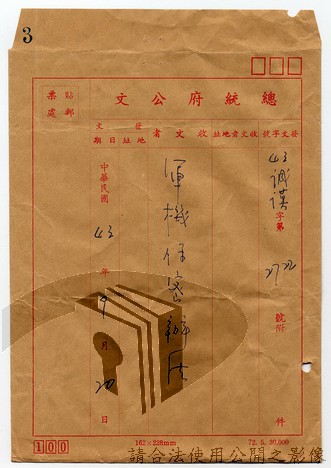 3
票 貼
處 郵
總統府公文
發文字號
收文者地址
收文者
發文
日期
地址
43
誠謨
字第
2722
號附
件
軍機保密辦法
中華民國
43
年
9
月
20
日
100
162×228mm
72.5.30,000
請合法使用公開之影像